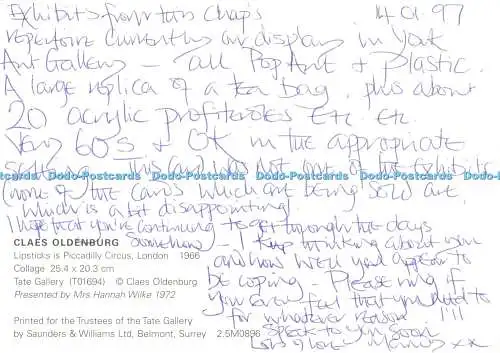 Exhibits from this chap's 14.01.97
repertoire currently on display in York
Art Gallery - all Pop Art & Plastic.
A large replica of a tea bag, plus about
20 acrylic profiteroles etc etc.
Very 60s & OK in the appropriate
setting. This card was not one of the exhibits
Dodo-Postcards Dodo-Postcards Dodo-Postcards Dodo-Postcards Dodo-Postcards
(none of the cards which are being sold are
which is a bit disappointing.
I hope that you're continuing to get through the days
somehow - I keep thinking about you
and how well you appear to
be coping - Please ring if
you ever feel that you need to
for whatever reason !!!!
Speak to you soon
Lots of love
CLAES OLDENBURG
Lipsticks is Piccadilly Circus, London 1966
Collage 25.4 x 20.3 cm
Tate Gallery (T01694) © Claes Oldenburg
Presented by Mrs Hannah Wilke 1972
Printed for the Trustees of the Tate Gallery
by Saunders & Williams Ltd, Belmont, Surrey 2.5M0896